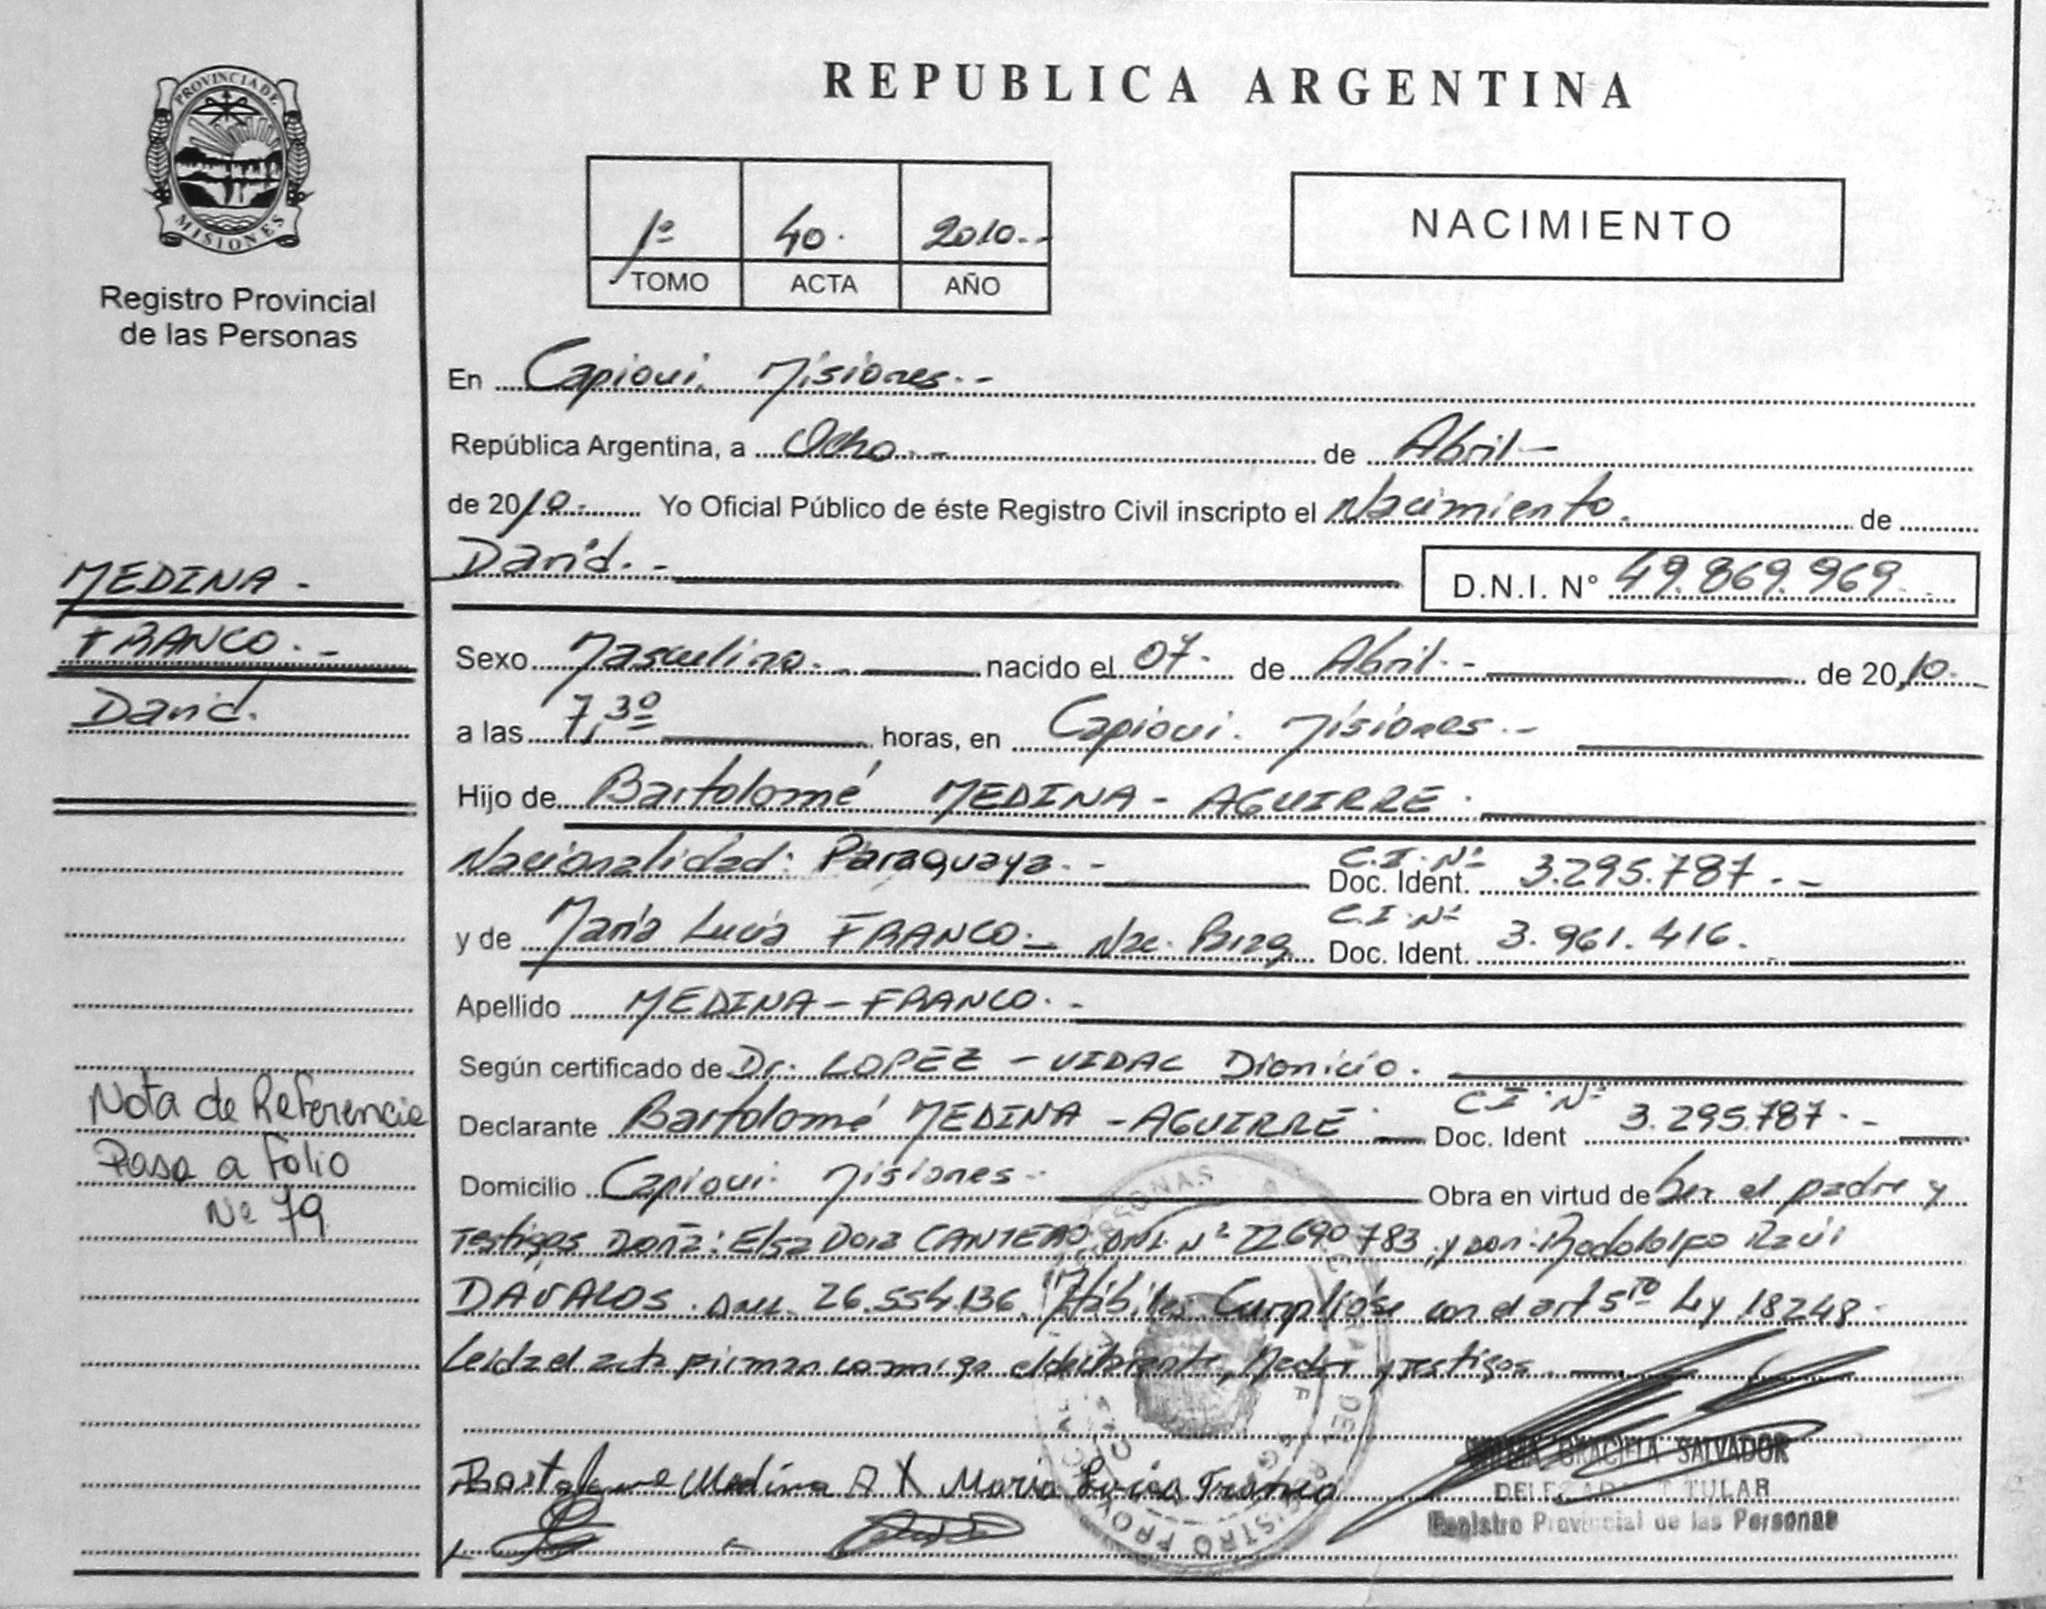 PROVINCIA DE
MISIONES
Registro Provincial
de las Personas
MEDINA -
FRANCO. -
David.
Nota de Referencia
Pasa a Folio
Nº 79
REPUBLICA ARGENTINA
1º 40. 2010. -
TOMO ACTA AÑO
NACIMIENTO
En Capiovi. Misiones. -
República Argentina, a Ocho. - de Abril -
de 2010. - Yo Oficial Público de éste Registro Civil inscripto el Nacimiento. de
David. - D.N.I. N° 49.869.969. -
Sexo Masculino. - nacido el 07. de Abril. - de 2010. -
a las 7,30 horas, en Capiovi. Misiones. -
Hijo de Bartolomé MEDINA - AGUIRRE.
Nacionalidad: Paraguaya. - C.I. Nº Doc. Ident. 3.295.787. -
y de María Lucia FRANCO. - Nac. C.I. Nº Doc. Ident. 3.961.416.
Apellido MEDINA - FRANCO. -
Según certificado de Dr. LOPEZ - VIDAL Dionicio.
Declarante Bartolomé MEDINA - AGUIRRE. C.I. Nº Doc. Ident 3.295.787. -
Domicilio Capiovi. Misiones. - Obra en virtud de Ser el padre y
Testigos Doña: Elsa CANTERO, DNI. Nº 22690783, y Don: Rodolofo Raúl
DAVALOS. DNI. 26.554.136. Hábiles. Cumplióse con el art 5to Ley 18248.
Leida el acta firman conmigo el declarante, Madre y testigos. -
Bartolome Medina A X Maria Lucia Franco
GRACIELA SALVADOR
DELEGADA TITULAR
Registro Provincial de las Personas